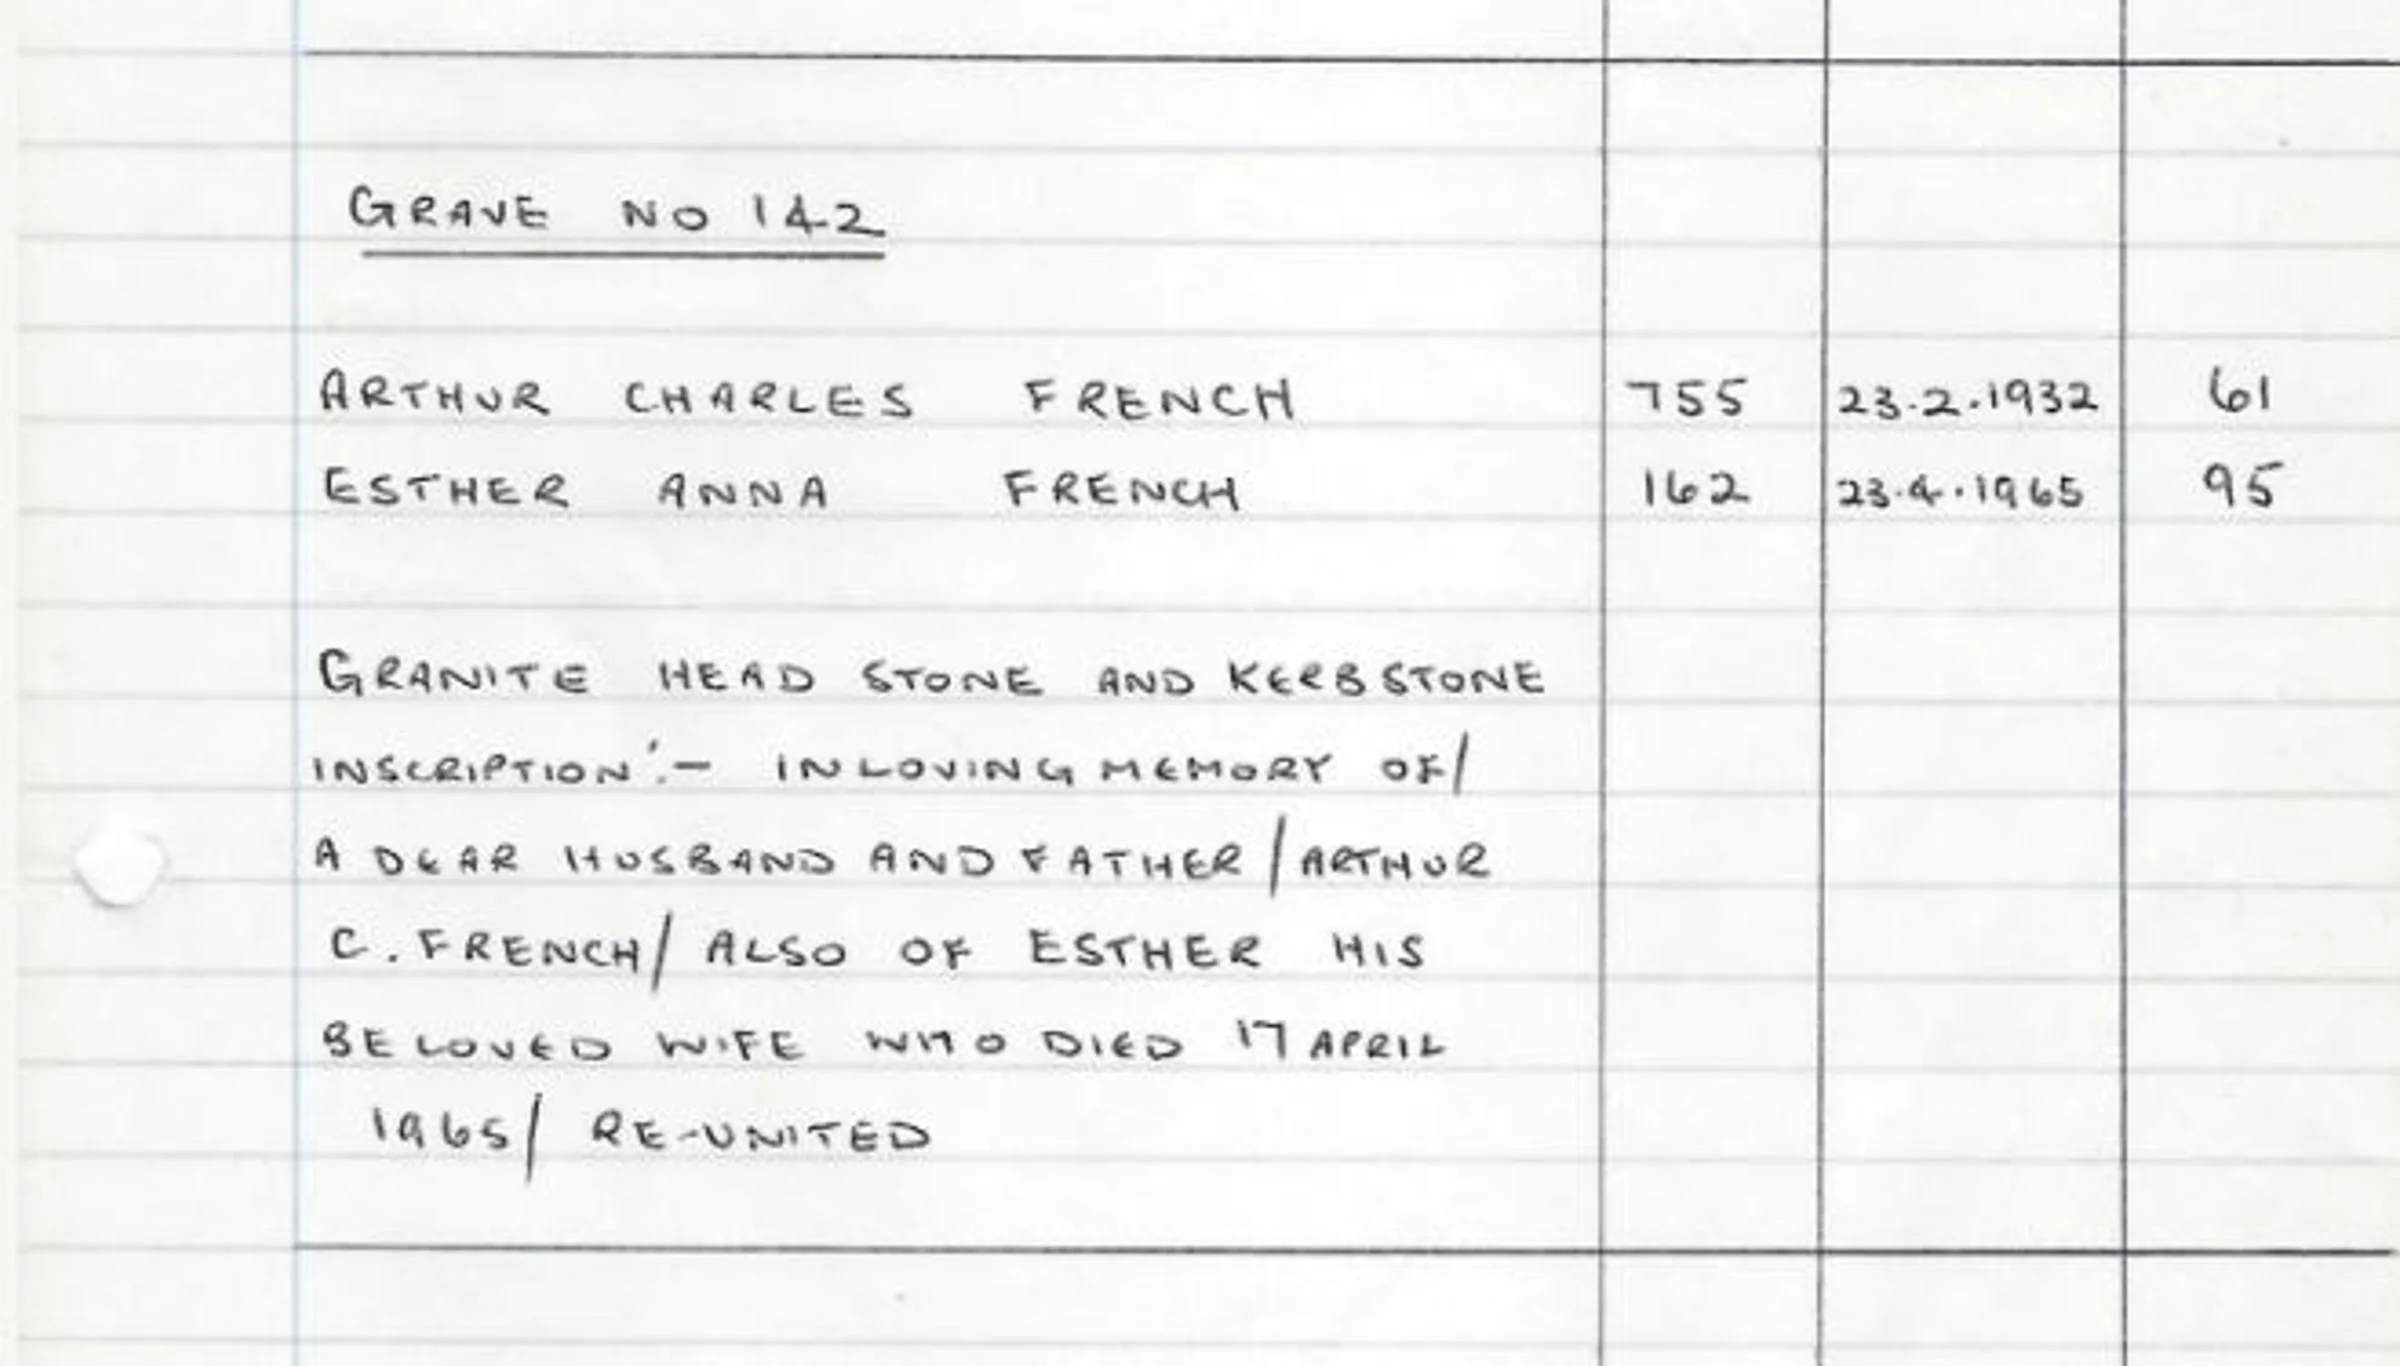 GRAVE NO 142
ARTHUR CHARLES FRENCH 755 23.2.1932 61
ESTHER ANNA FRENCH 162 23.4.1965 95
GRANITE HEAD STONE AND KERBSTONE
INSCRIPTION:- IN LOVING MEMORY OF/
A DEAR HUSBAND AND FATHER/ARTHUR
C. FRENCH/ ALSO OF ESTHER HIS
BELOVED WIFE WHO DIED 17 APRIL
1965/ RE-UNITED